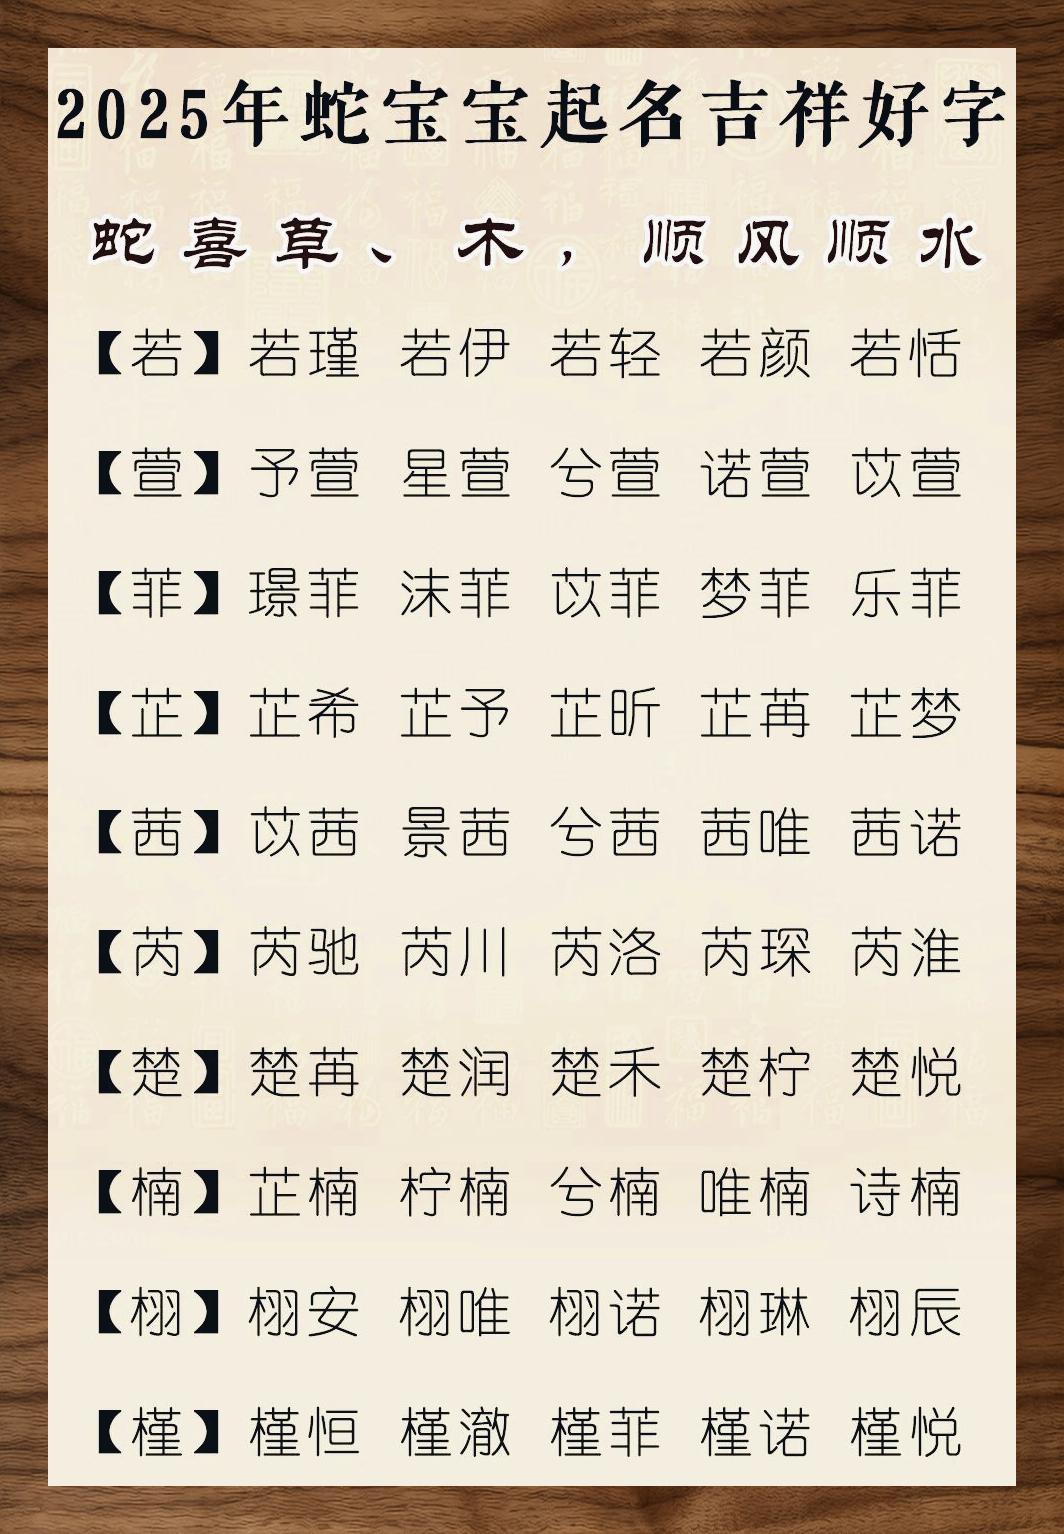 2025年蛇宝宝起名吉祥好字
蛇喜草、木，顺风顺水
【若】 若瑾 若伊 若轻 若颜 若恬
【萱】 予萱 星萱 兮萱 诺萱 苡萱
【菲】 璟菲 沫菲 苡菲 梦菲 乐菲
【芷】 芷希 芷予 芷昕 芷苒 芷梦
【茜】 苡茜 景茜 兮茜 茜唯 茜诺
【芮】 芮驰 芮川 芮洛 芮琛 芮淮
【楚】 楚苒 楚润 楚禾 楚柠 楚悦
【楠】 芷楠 柠楠 兮楠 唯楠 诗楠
【栩】 栩安 栩唯 栩诺 栩琳 栩辰
【槿】 槿恒 槿澈 槿菲 槿诺 槿悦